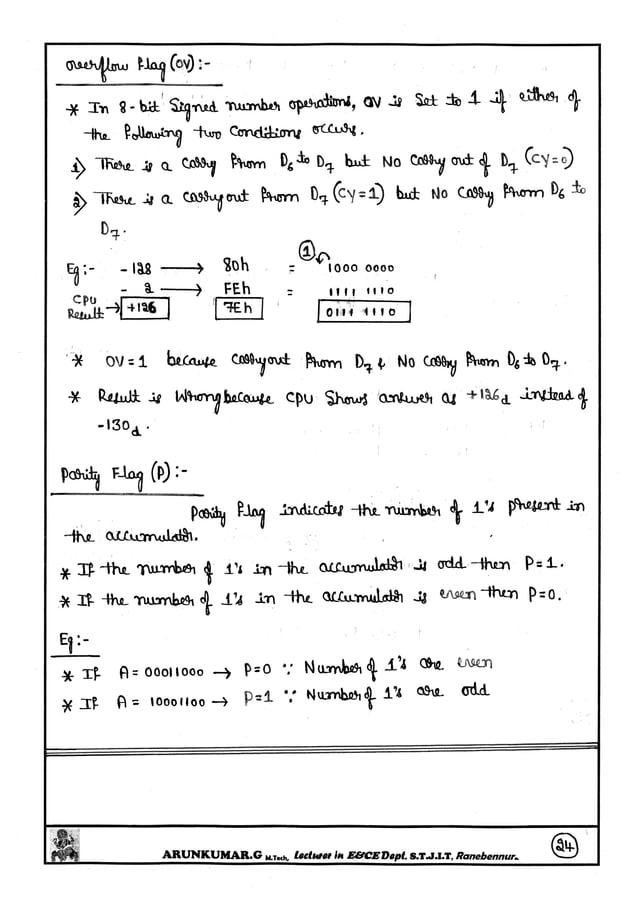 Overflow Flag (OV):-
* In 8-bit Signed number operations, OV is Set to 1 if either of
the following two Conditions occurs.
1) There is a carry from D6 to D7 but No Carry out of D7 (CY=0)
2) There is a carryout from D7 (CY=1) but No Carry from D6 to
D7.
Eg:- -128 → 80h = ① 1000 0000
- 2 → FEh = 1111 1110
CPU Result → +126 7Eh 0111 1110
* OV=1 because Carryout from D7 & No Carry from D6 to D7.
* Result is Wrong because CPU Shows answer as +126d instead of
-130d.
Parity Flag (P):-
Parity Flag indicates the number of 1's present in
the accumulator.
* If the number of 1's in the accumulator is odd then P=1.
* If the number of 1's in the accumulator is even then P=0.
Eg:-
* If A = 00011000 → P=0 ∵ Number of 1's are even
* If A = 10001100 → P=1 ∵ Number of 1's are odd
ARUNKUMAR.G M.Tech, Lecturer in E&CE Dept. S.T.J.I.T, Ranebennur.
24